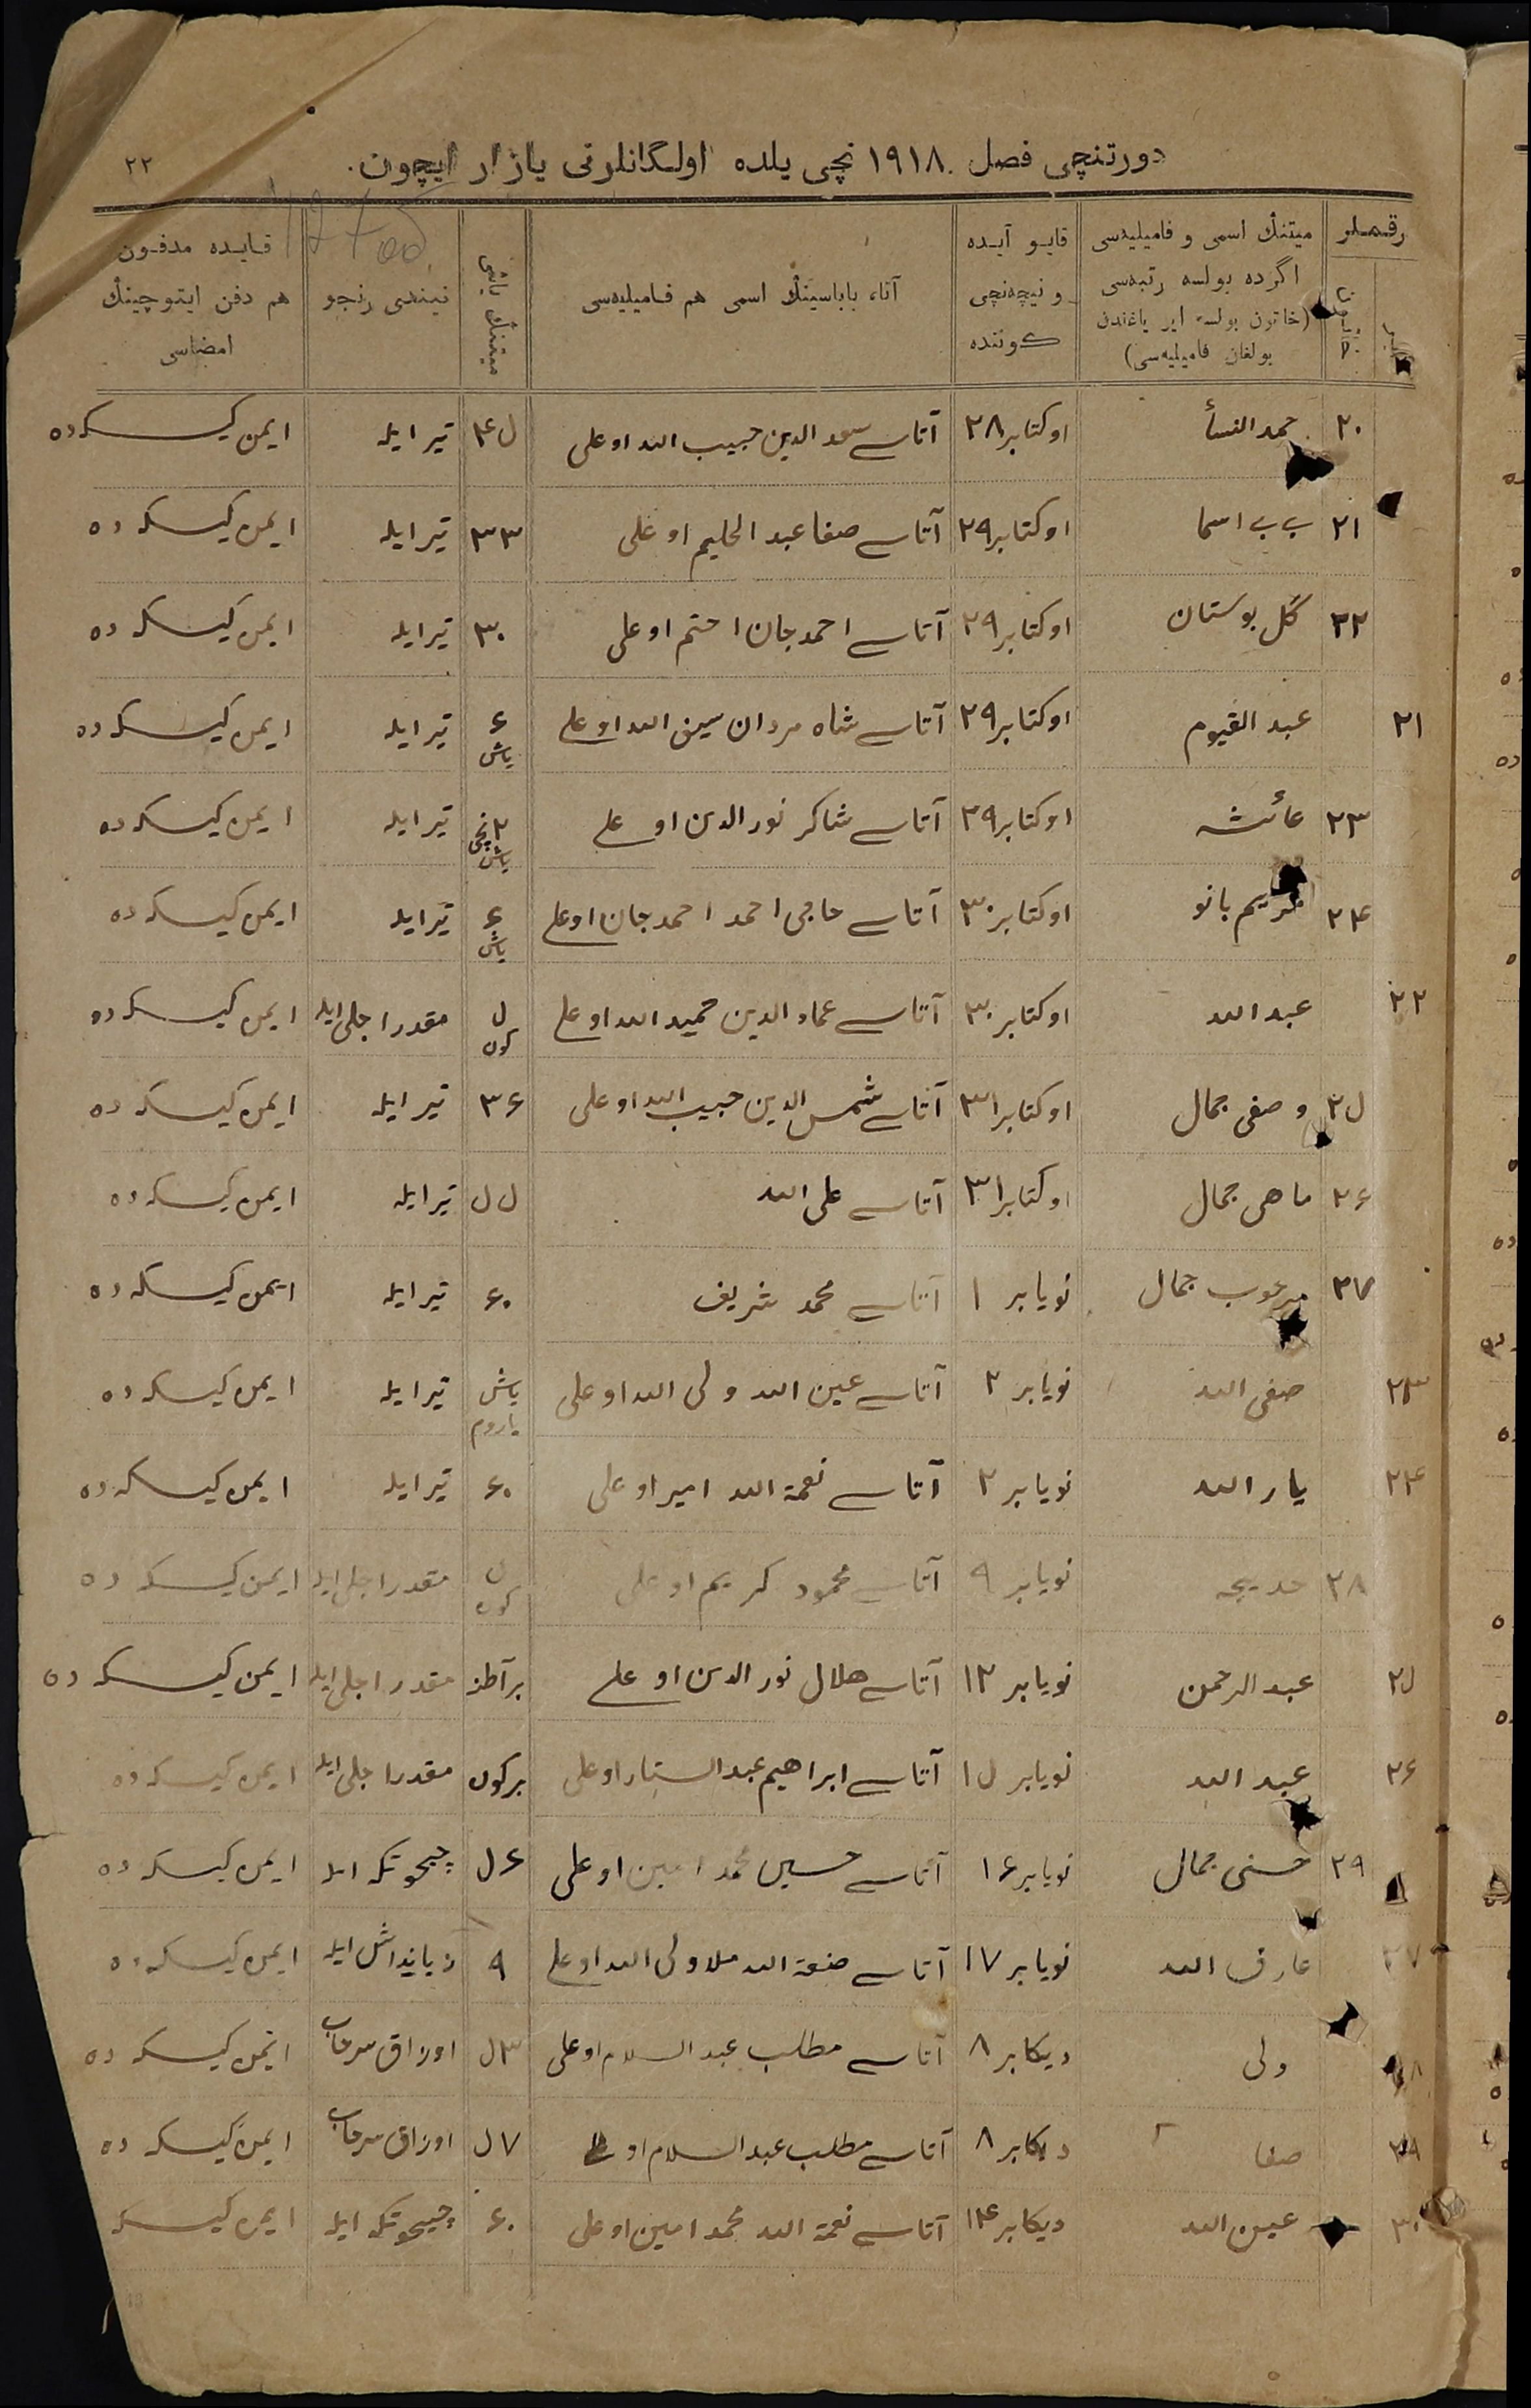 دورتنچی فصل ۱۹۱۸ نچی یلده اولگانلرنی یازار ایچون. ۲۲
رقملر
میتنڭ اسمی و فامیلیەسی اگرده بولسه رتبەسی (خاتون بولسه ایر یاغندن بولغان فامیلیەسی)
قایو آیده و نیچەنچی کوننده
آتا، باباسینڭ اسمی هم فامیلیەسی
میتنڭ یاشی
نیندی رنجو
قایده مدفون هم دفن ایتوچینڭ امضاسی
۲۰ حمد النسأ اوکتابر ۲۸ آتاسے سعد الدین حبیب الله اوغلی ۴ل تیر ایله ایمن کیسکه ده
۲۱ بے بے اسما اوکتابر ۲۹ آتاسے صفا عبد الحلیم اوغلی ۳۳ تیر ایله ایمن کیسکه ده
۲۲ گل بوستان اوکتابر ۲۹ آتاسے احمد جان احتم اوغلی ۳۰ تیر ایله ایمن کیسکه ده
۲۱ عبد القیوم اوکتابر ۲۹ آتاسے شاه مردان سیف الله اوغلے ۶ یاش تیر ایله ایمن کیسکه ده
۲۳ عائشه اوکتابر ۲۹ آتاسے شاکر نور الدین اوغلے ۲ نچی یاش تیر ایله ایمن کیسکه ده
۲۴ مریم بانو اوکتابر ۳۰ آتاسے حاجی احمد احمد جان اوغلے ۶ یاش تیر ایله ایمن کیسکه ده
۲۲ عبد الله اوکتابر ۳۰ آتاسے عماد الدین حمید الله اوغلے ل کون مقدر اجلی ایله ایمن کیسکه ده
۲ل وصفی جمال اوکتابر ۳۱ آتاسے شمس الدین حبیب الله اوغلی ۳۶ تیر ایله ایمن کیسکه ده
۲۶ ماهی جمال اوکتابر ۳۱ آتاسے علی الله ل ل تیر ایله ایمن کیسکه ده
۲۷ مرغوب جمال نویابر ۱ آتاسے محمد شریف ۶۰ تیر ایله ایمن کیسکه ده
۲۳ صفی الله نویابر ۲ آتاسے عین الله ولی الله اوغلی یاش یاروم تیر ایله ایمن کیسکه ده
۲۴ یار الله نویابر ۲ آتاسے نعمة الله امیر اوغلی ۶۰ تیر ایله ایمن کیسکه ده
۲۸ خدیجه نویابر ۹ آتاسے محمود کریم اوغلی ل کون مقدر اجلی ایله ایمن کیسکه ده
۲ل عبد الرحمن نویابر ۱۲ آتاسے هلال نور الدین اوغلے بر آطنه مقدر اجلی ایله ایمن کیسکه ده
۲۶ عبد الله نویابر ل۱ آتاسے ابراهیم عبد الستار اوغلی بر کون مقدر اجلی ایله ایمن کیسکه ده
۲۹ حسنی جمال نویابر ۱۶ آتاسے حسین محمد امین اوغلی ۶ل چیحوتکه ایله ایمن کیسکه ده
۲۷ عارف الله نویابر ۱۷ آتاسے صنعة الله ملا ولی الله اوغلے ۹ ایله ایمن کیسکه ده
۲۸ ولی دیکابر ۸ آتاسے مطلب عبد السلام اوغلی ۳ل اوزاق سرخاب ایمن کیسکه ده
۲۹ صفا دیکابر ۸ آتاسے مطلب عبد السلام اوغلے ۷ل اوزاق سرخاب ایمن کیسکه ده
۳۰ عین الله دیکابر ۱۴ آتاسے نعمة الله محمد امین اوغلی ۶۰ چیحوتکه ایله ایمن کیسکه